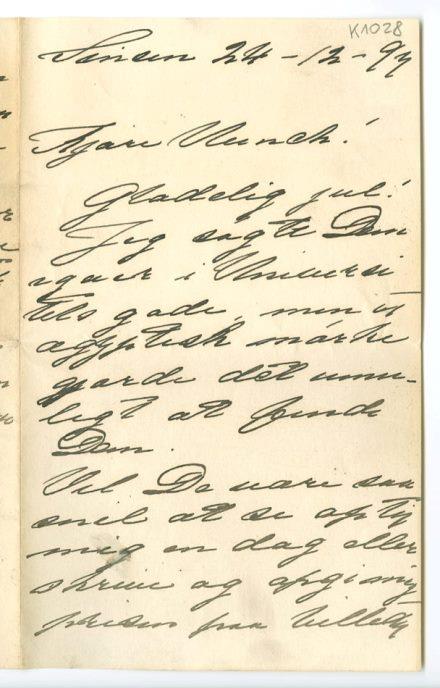 K1028
Sinsen 24-12-97
Kjære Munch!
Glædelig jul!
Jeg søgte Dem
igaar i Universi
tets gade, men et
ægyptisk mørke
gjorde det umu-
ligt at finde
Dem.
Vil De være saa
snil at se op til
mig en dag eller
skrive og opgi mig
prisen paa billett